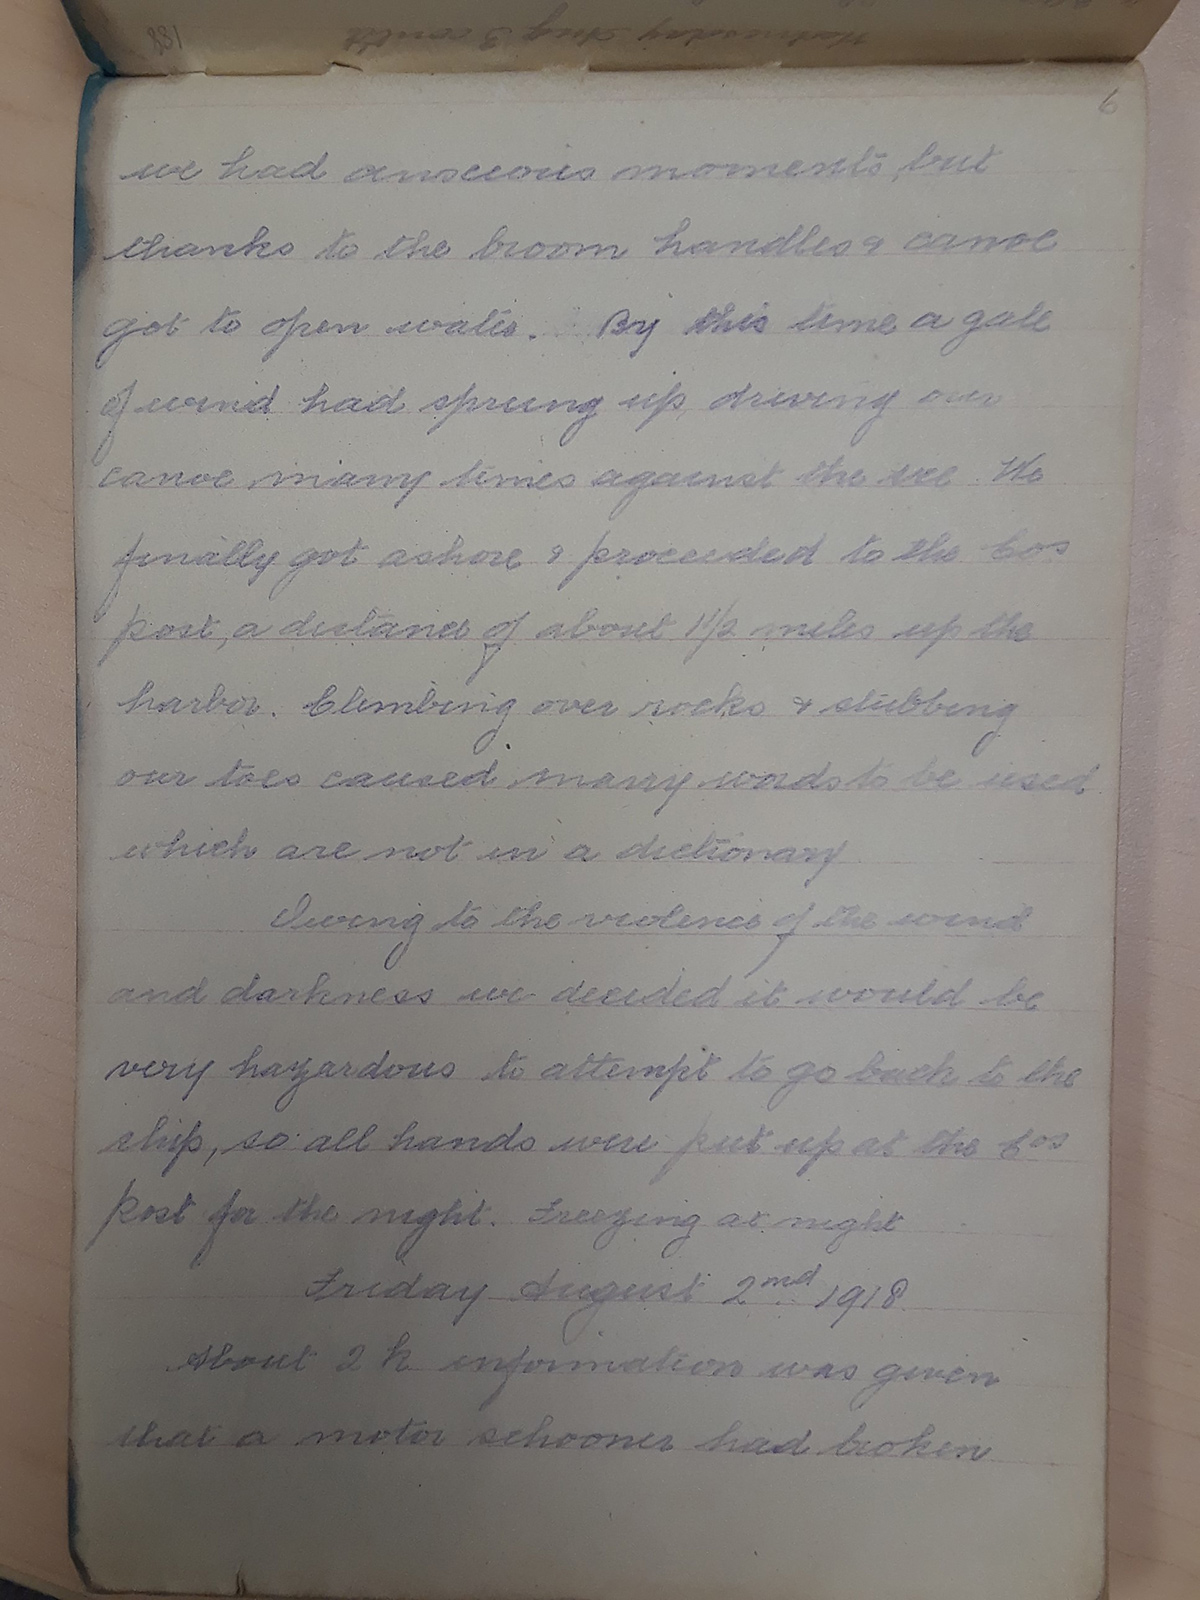 6
we had anscious moments, but
thanks to the broom handles & canoe
got to open water. By this time a gale
of wind had sprung up, driving our
canoe many times against the ice. We
finally got ashore & proceeded to the Cos
post, a distance of about 1 1/2 miles up the
harbor. Climbing over rocks & stubbing
our toes caused many words to be used
which are not in a dictionary
Owing to the violence of the wind
and darkness we decided it would be
very hazardous to attempt to go back to the
ship, so all hands were put up at the Cos
post for the night. Freezing at night
Friday August 2nd 1918
About 2 h information was given
that a motor schooner had broken